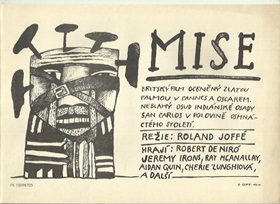 MISE
BRITSKÝ FILM OCENĚNÝ ZLATOU
PALMOU V CANNES A OSCAREM.
NEBLAHÝ OSUD INDIÁNSKÉ OSADY
SAN CARLOS V POLOVINĚ OSMNÁ-
CTÉHO STOLETÍ.
REŽIE: ROLAND JOFFÉ
HRAJÍ: ROBERT DE NIRO
JEREMY IRONS, RAY MCANALLAY,
AIDAN QUIN, CHERIE LUNGHIOVÁ,
A DALŠÍ